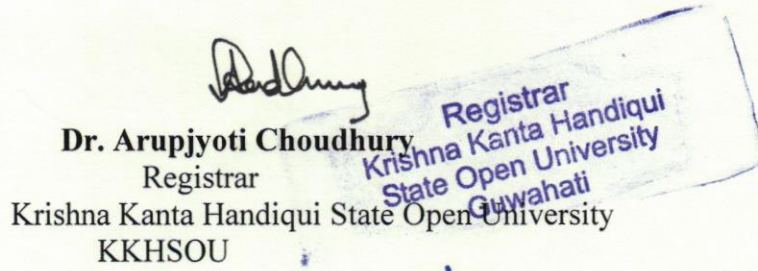 Dr. Arupjyoti Choudhury
Registrar
Krishna Kanta Handiqui State Open University
KKHSOU
Registrar
Krishna Kanta Handiqui
State Open University
Guwahati